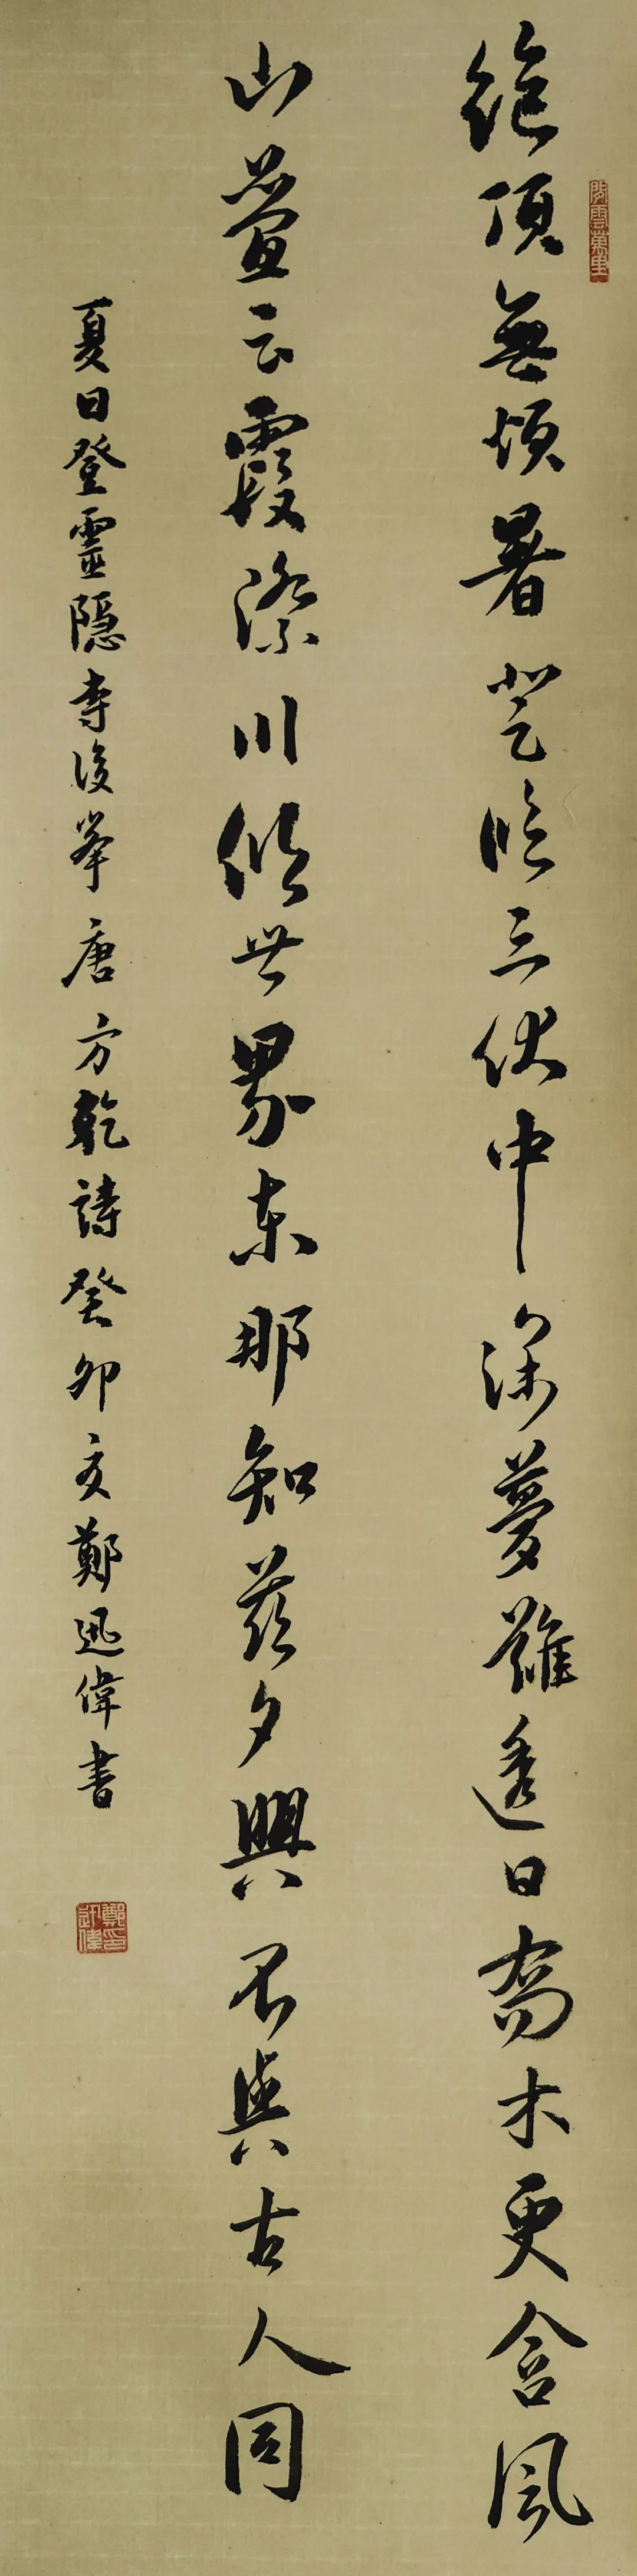 雲萬里
絕頂無煩暑登臨三伏中深夢難透日喬木更含風
山疊云霞際川傾世界東那知茲夕興不與古人同
夏日登靈隱寺後峯唐方乾詩癸卯夏鄭迅偉書
鄭印迅偉